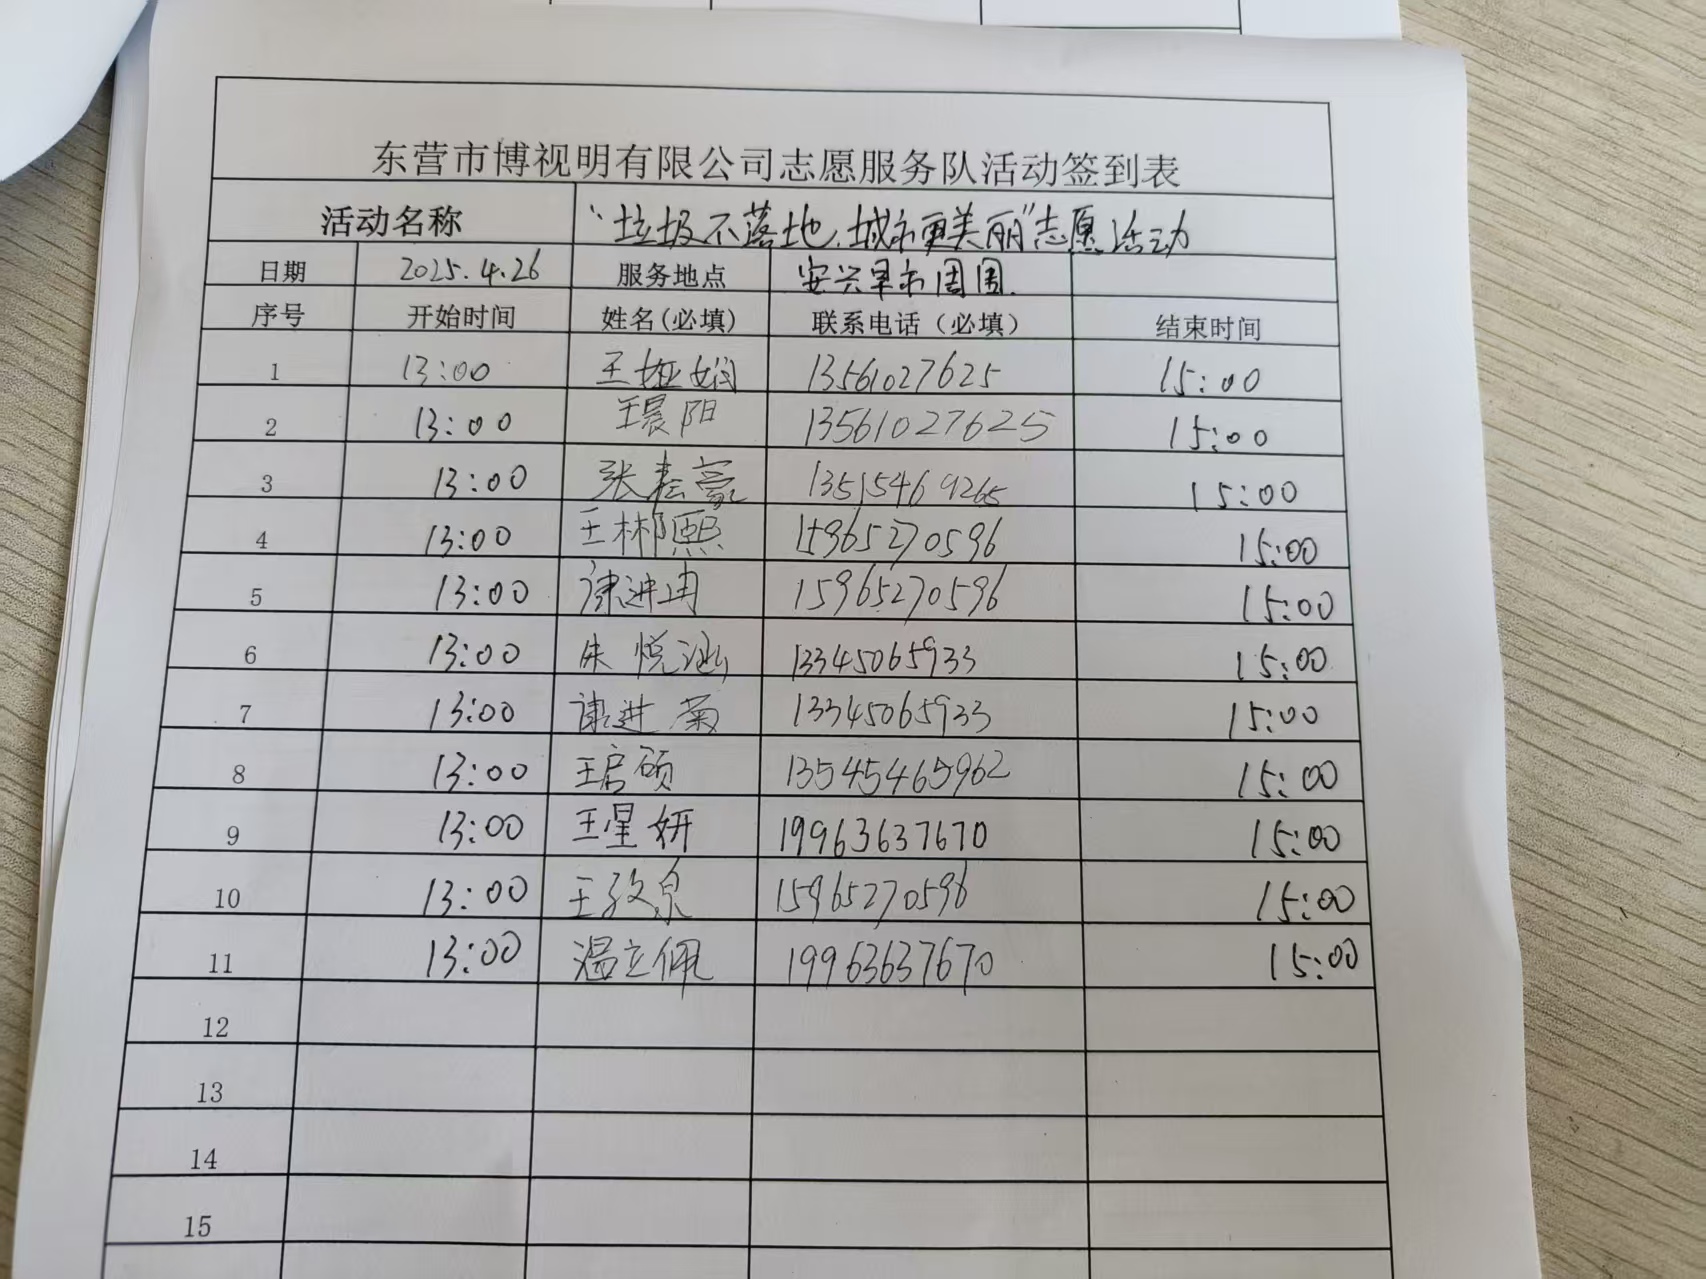 东营市博视明有限公司志愿服务队活动签到表
活动名称 “垃圾不落地,城市更美丽”志愿活动
日期 2025.4.26 服务地点 安兴早市周围.
序号 开始时间 姓名(必填) 联系电话(必填) 结束时间
1 13:00 王娅娴 13561027625 15:00
2 13:00 王晨阳 13561027625 15:00
3 13:00 张耘豪 13515469265 15:00
4 13:00 王彬熙 15965270596 15:00
5 13:00 15965270596 15:00
6 13:00 朱悦涵 13345065933 15:00
7 13:00 谢进菊 13345065933 15:00
8 13:00 王启硕 13545465962 15:00
9 13:00 王星妍 19963637670 15:00
10 13:00 15965270596 15:00
11 13:00 温立佩 19963637670 15:00
12
13
14
15